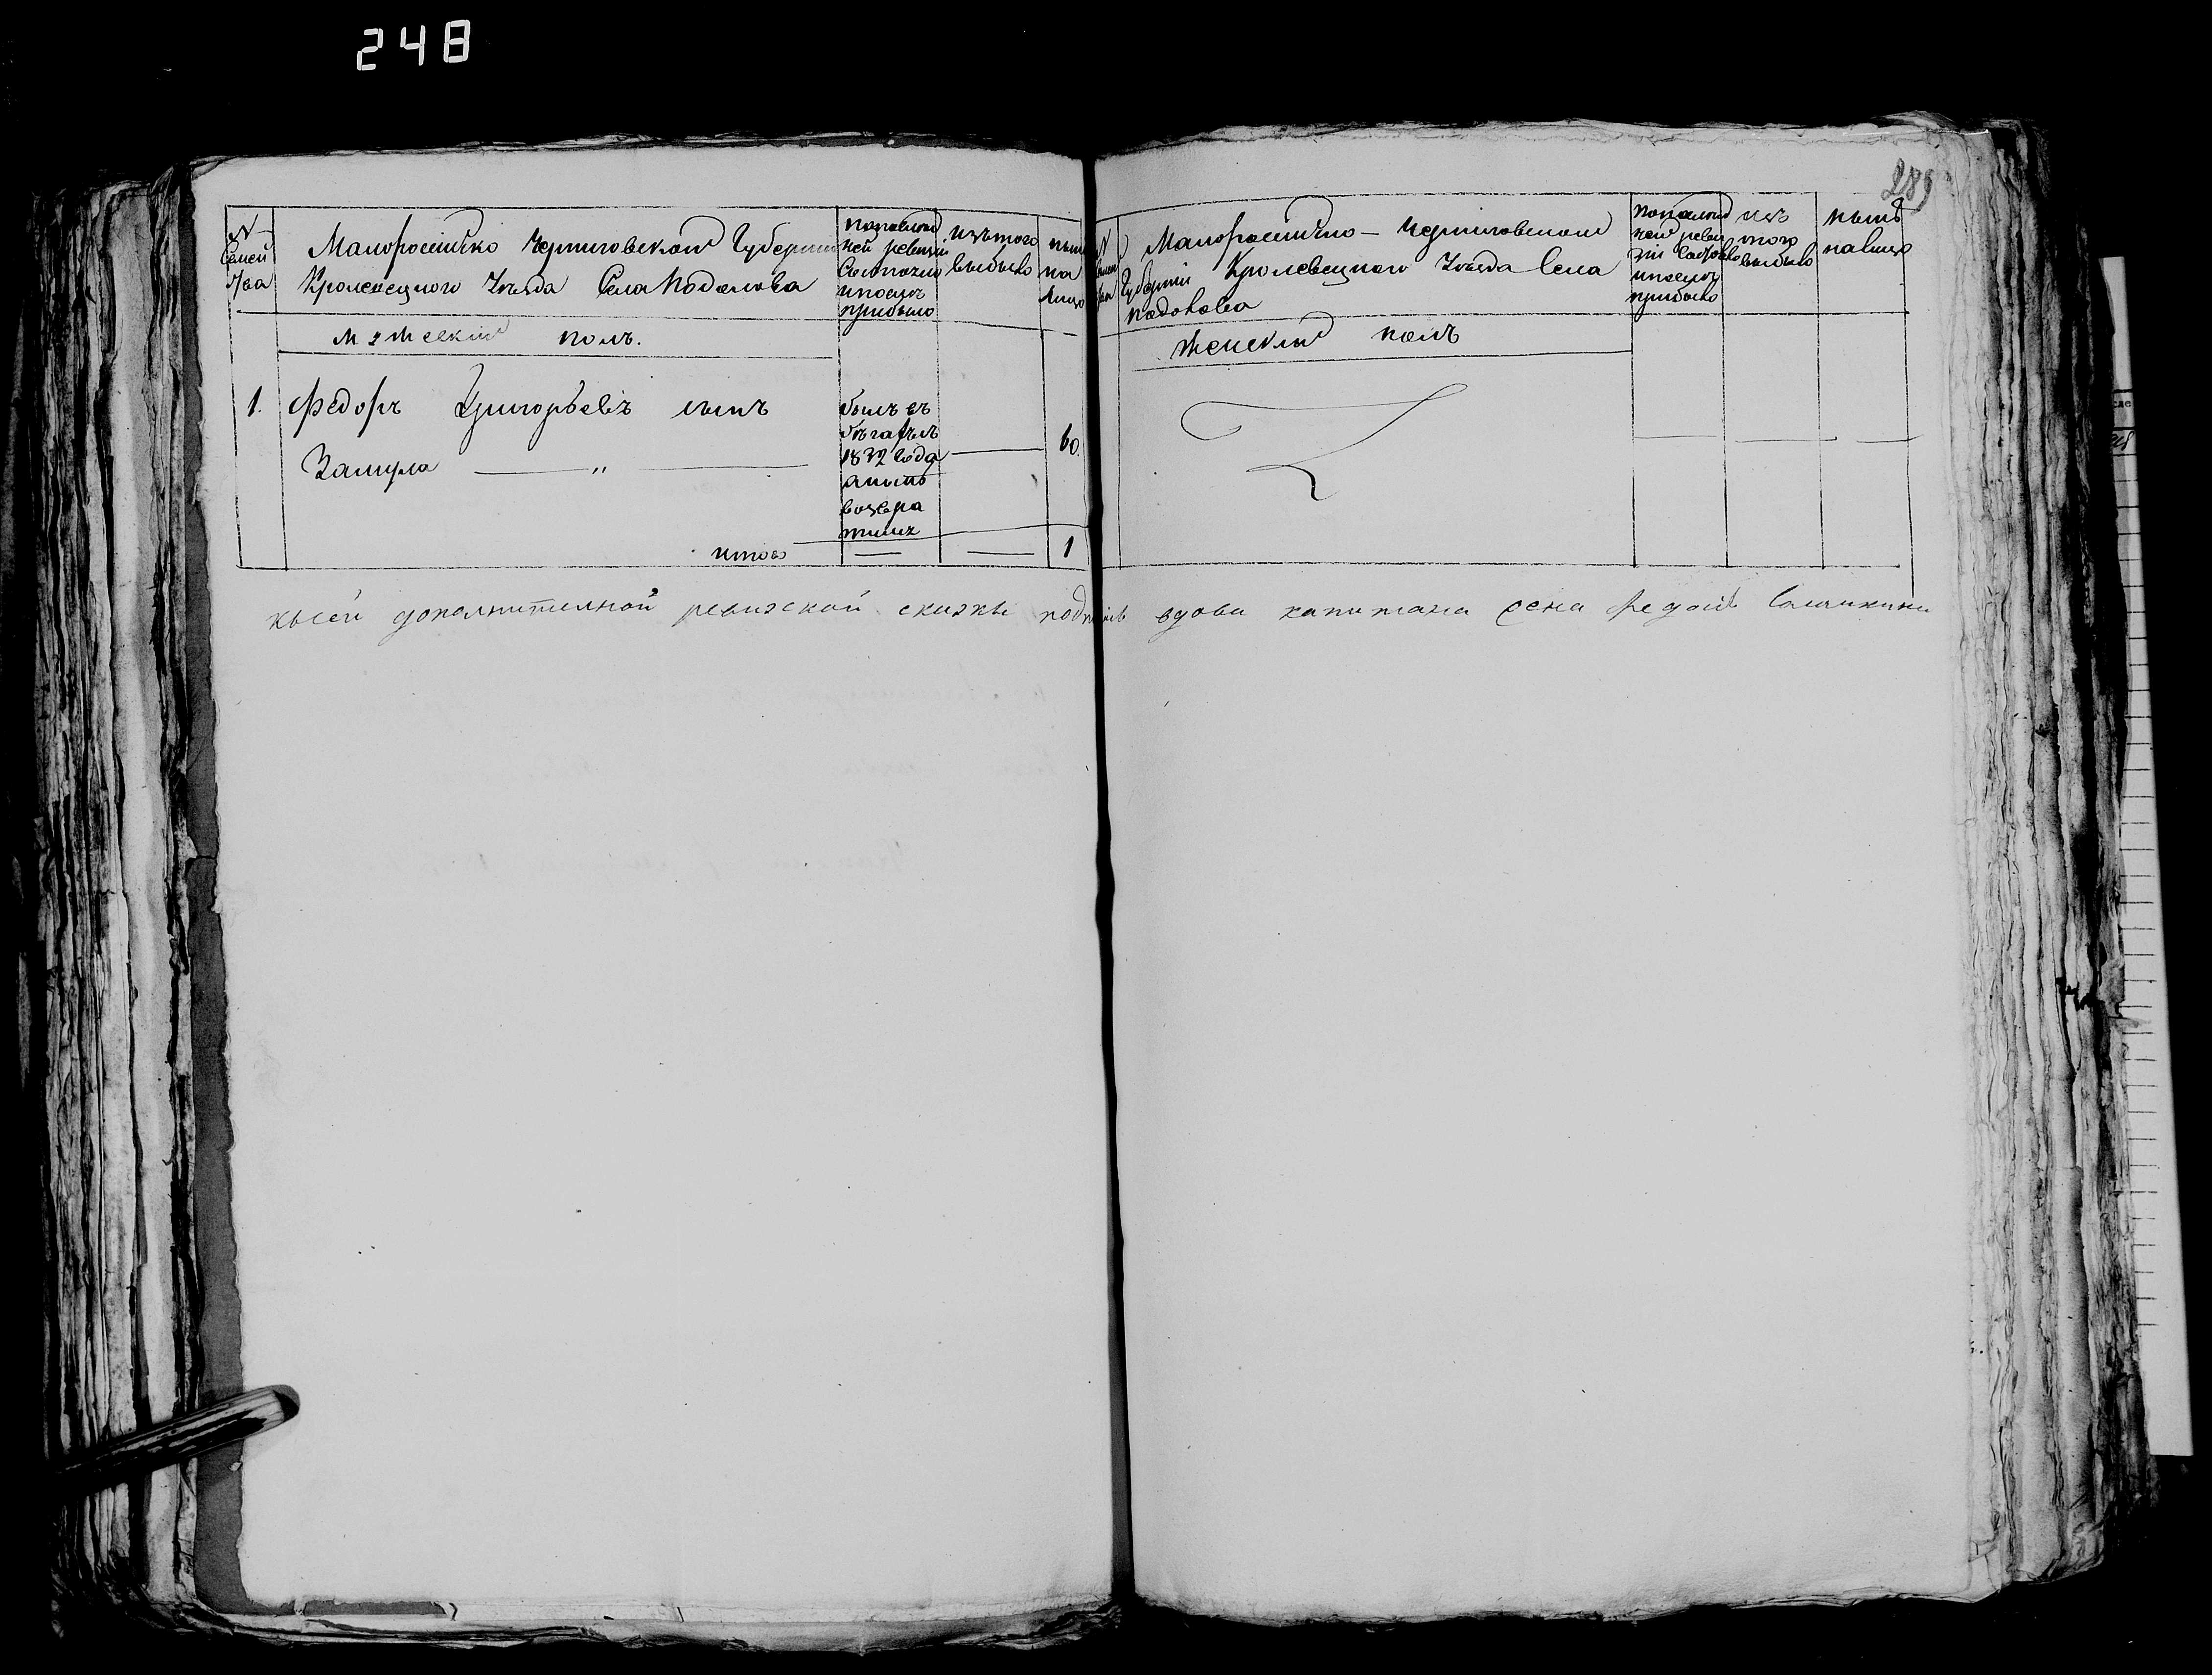 248
289
N
Семей
ства
Малороссійско Черниговской Губерніи
Кролевецкого Уезда Села Подолова
По последней ревизіи
Состояло
и после
прибыло
Изътого
выбыло
ныне
на
лицо
Мужескій полъ.
1. Федоръ Григорьевъ сынъ
Замула — " —
былъ въ
бегахъ съ
1832 года
а ныне
возвра
тилсь
— 60.
итого — — 1
Малороссійско - Черниговской
Губерніи Кролевецкого Уезда Села
Подолова
По последней реви
зіи Состояло
и после
прибыло
изъ
того
выбыло
ныне
на лицо
Женскій полъ
— — —
ксей дополнителной ревизской скизки вдова капитана